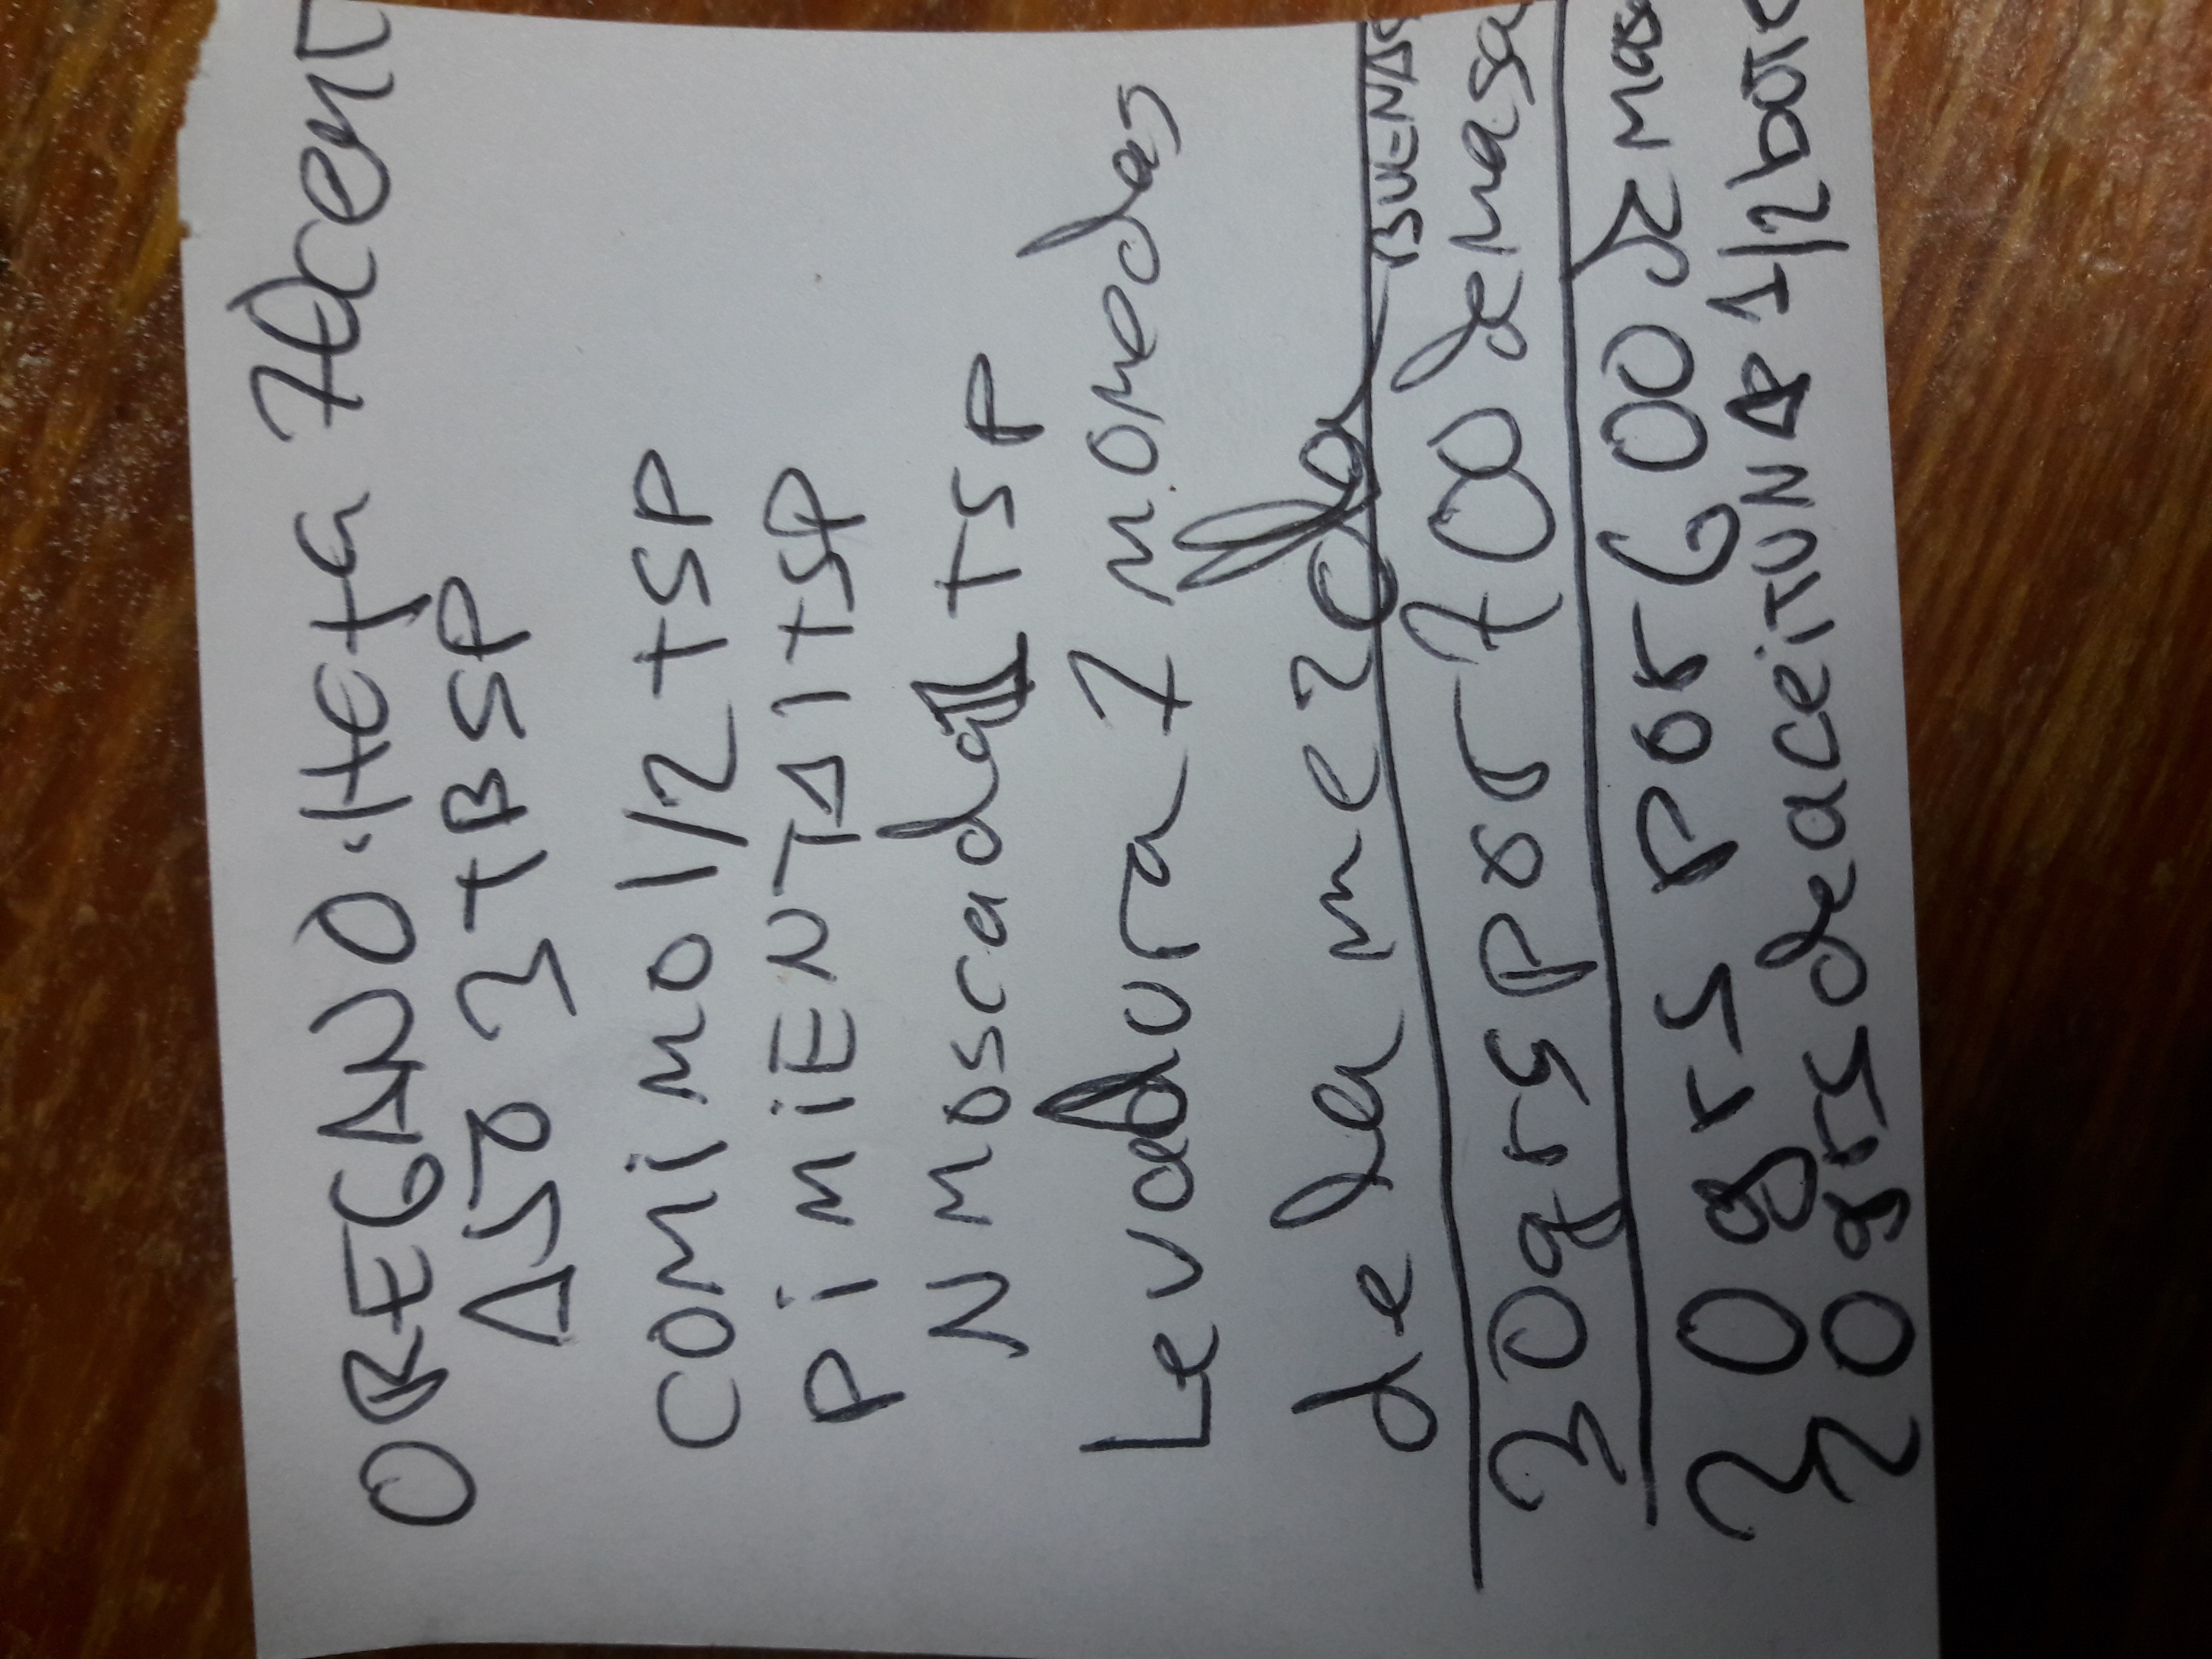 OREGANO
AJO 3 TBSP
COMiMO 1/2 TSP
PiMiENTA 1 TSP
N moscada TSP
Levadura 7 monedas
de la mezcla
BUENAS
30grs por 700 de masa
30 grs por 600 DE masa
20grs de aceituna 1/2